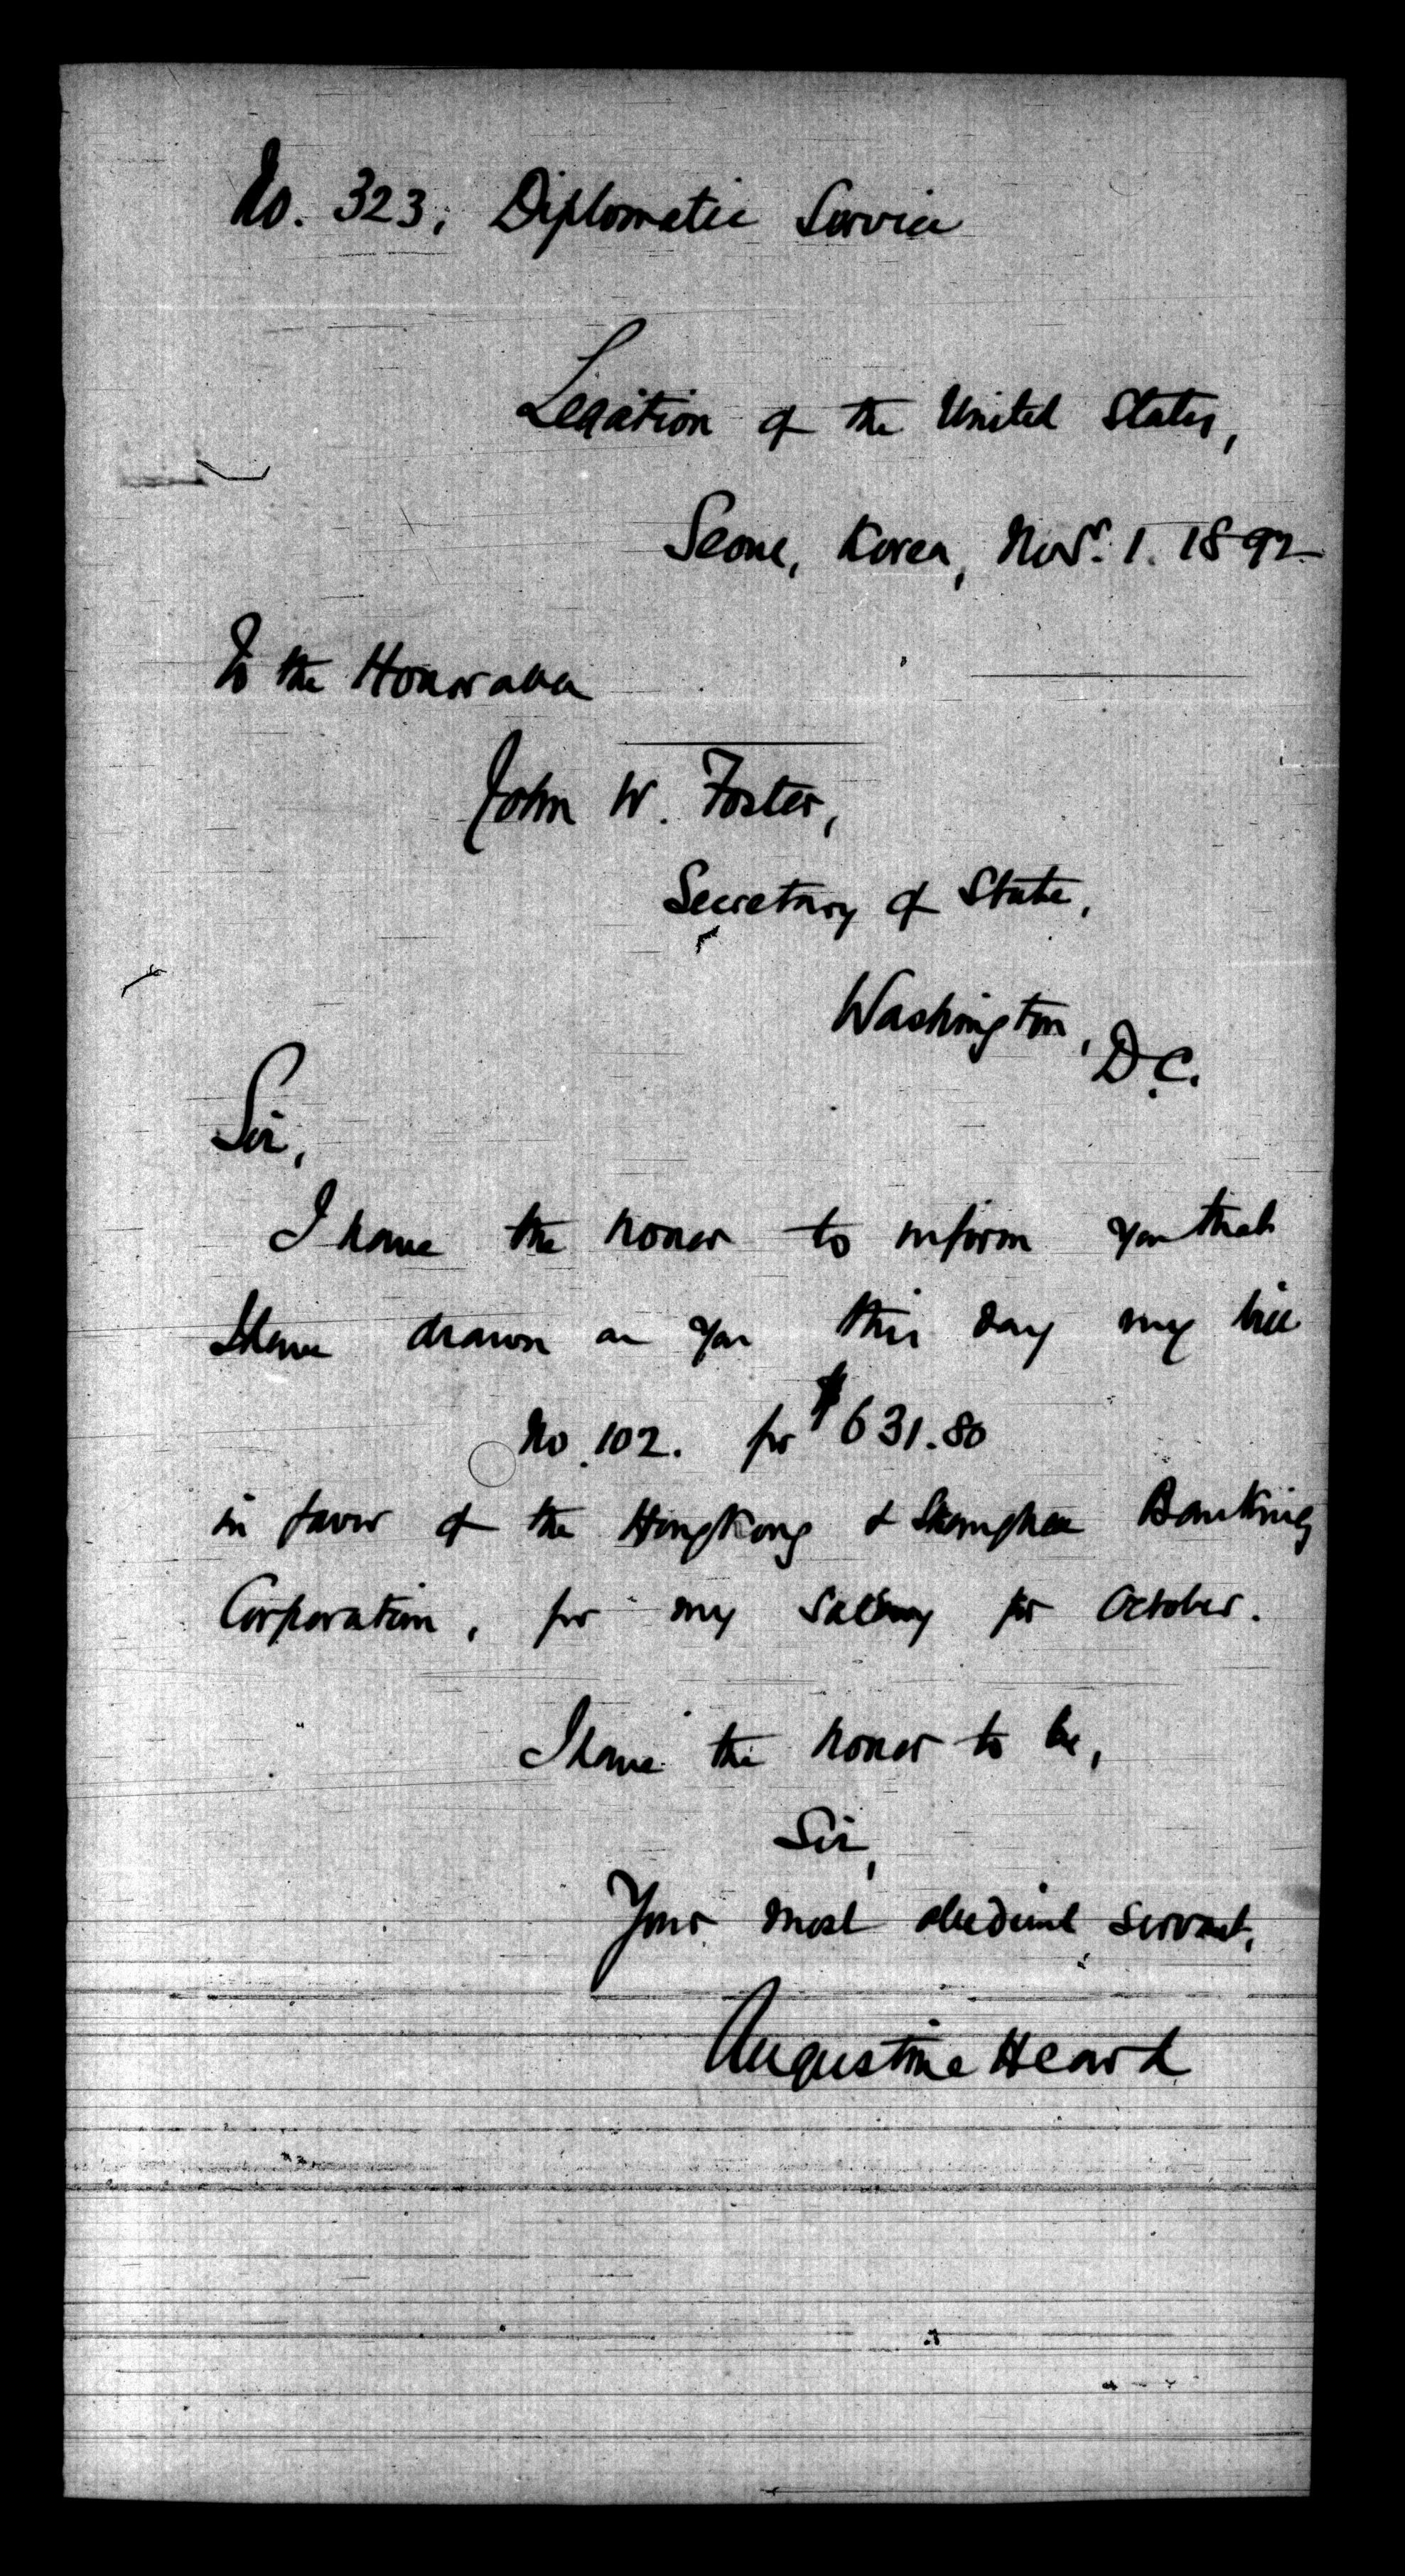 No. 323, Diplomatic Service
Legation of the United States,
Seoul, Korea, Nov. 1. 1892
To the Honorable
John W. Foster,
Secretary of State,
Washington, D.C.
Sir,
I have the honor to inform you that
I have drawn on you this day my bill
No. 102. for $631.80
in favor of the HongKong & Shanghai Banking
Corporation, for my salary for October.
I have the honor to be,
Sir,
Your most obedient servant,
Augustine Heard